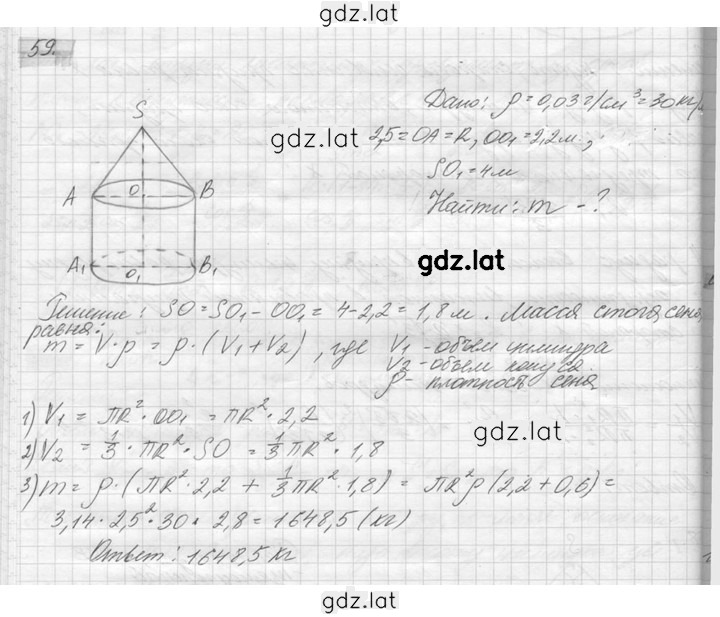 gdz.lat
59.
Дано: ρ = 0,03 г/см³ = 30 кг/м
gdz.lat
2,5 = OA = R, OO₁ = 2,2 м,
SO₁ = 4 м
Найти: m - ?
S
A O B
A₁ O₁ B₁
gdz.lat
Решение: SO = SO₁ - OO₁ = 4 - 2,2 = 1,8 м. Масса стога сена
равна:
m = V · ρ = ρ · (V₁ + V₂), где V₁ - объем цилиндра
V₂ - объем конуса
ρ - плотность сена
1) V₁ = πR² · OO₁ = πR² · 2,2
gdz.lat
2) V₂ = 1/3 · πR² · SO = 1/3 πR² · 1,8
3) m = ρ · (πR² · 2,2 + 1/3 πR² · 1,8) = πR²ρ (2,2 + 0,6) =
3,14 · 2,5² · 30 · 2,8 = 1648,5 (кг)
Ответ: 1648,5 кг
gdz.lat